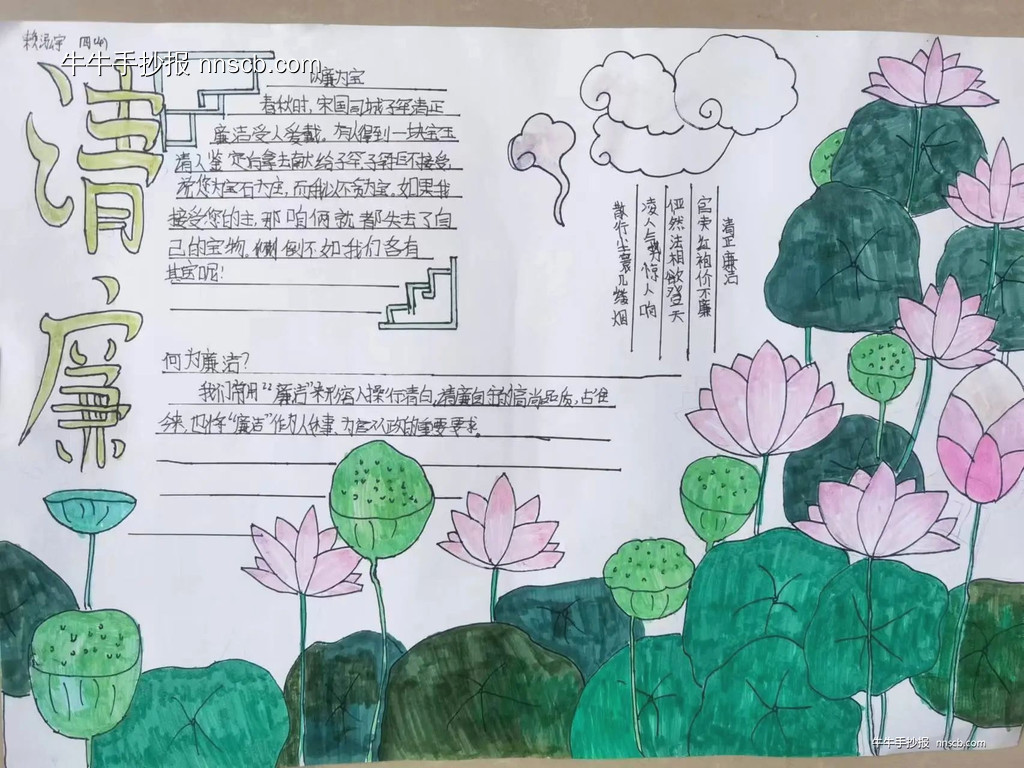 牛牛手抄报 nnscb.com
清廉
以廉为宝
春秋时,宋国司城子罕清正
廉洁,受人爱戴。有人得到一块宝玉
请人鉴定后拿去献给子罕,子罕拒不接受,
说您为宝石为主,而我以不贪为宝,如果我
接受您的玉,那咱俩就都失去了自
己的宝物。倒不如我们各有
其宝呢!
清正廉洁
官卖红袍价不廉
俨然法相欲登天
凌人气势惊人响
散作尘雾几缕烟
何为廉洁?
我们常用“廉洁”来形容人操行清白,清廉自守的高尚品质,古往
今来,也将“廉洁”作为人处事,为官从政的重要要求。
牛牛手抄报 nnscb.com